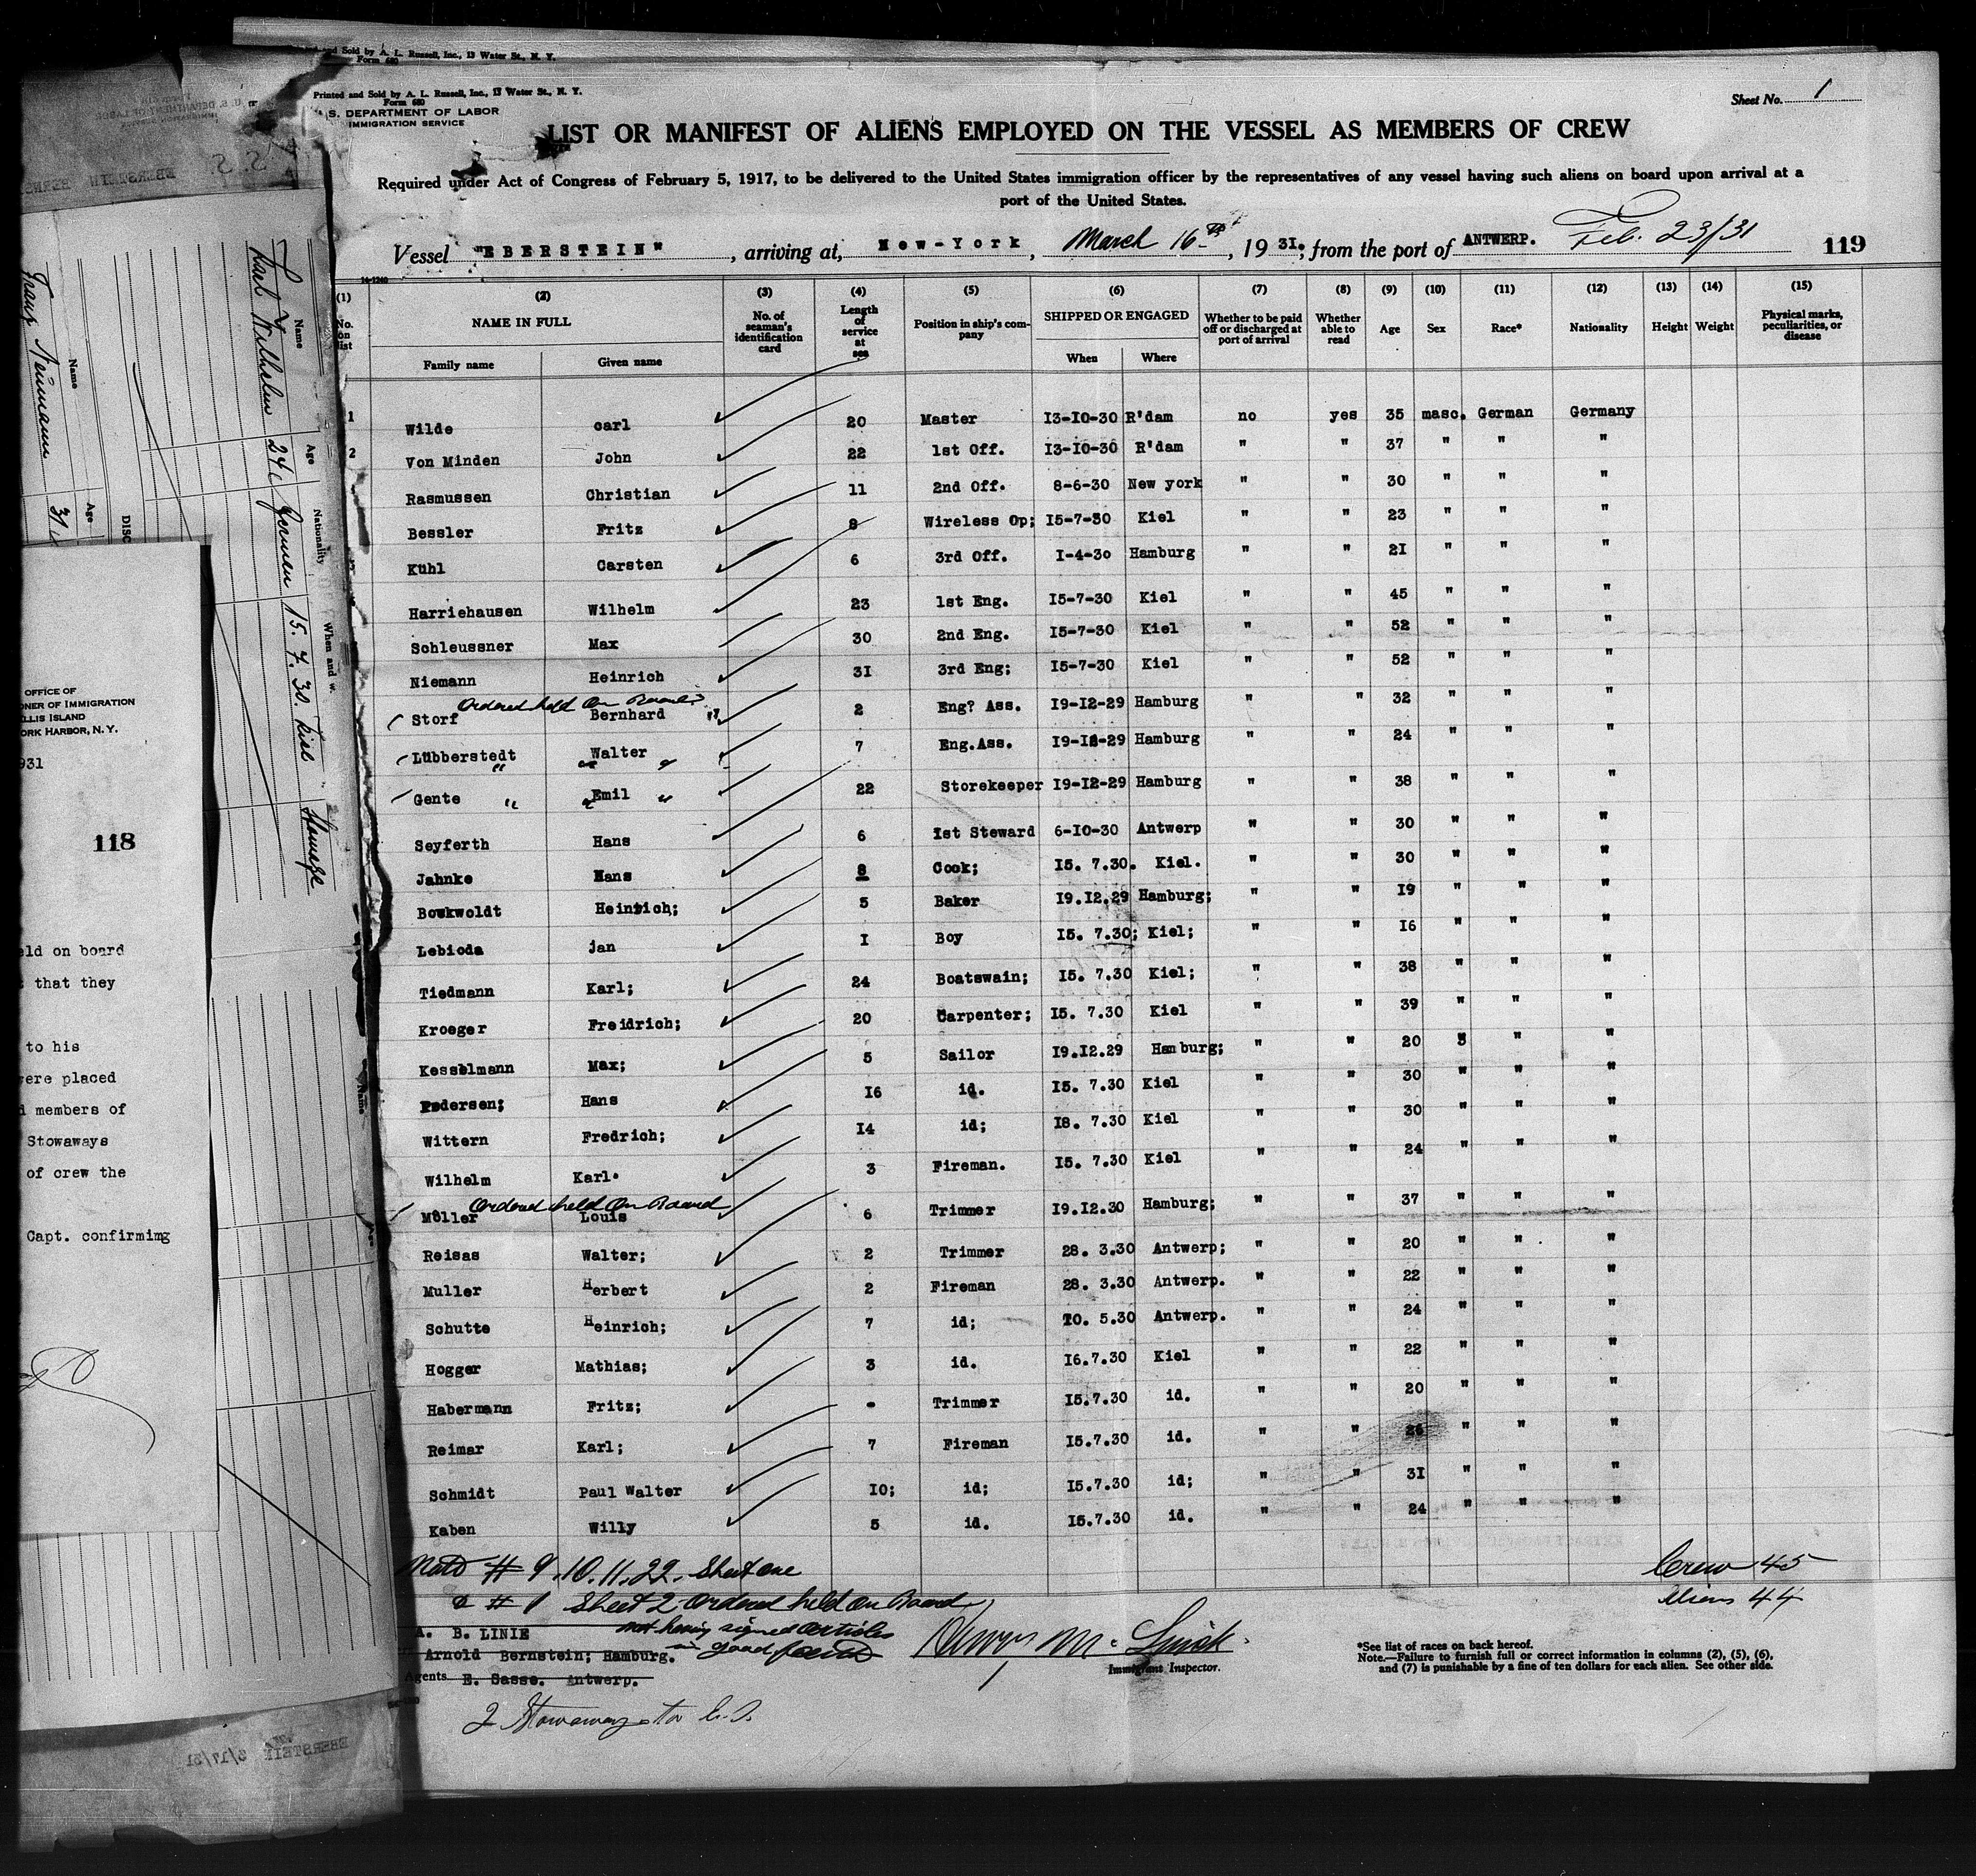 and Sold by A. L. Russell, Inc., 13 Water St., N. Y.
Form 680
Printed and Sold by A. L. Russell, Inc., 13 Water St., N. Y.
Form 680
S. DEPARTMENT OF LABOR
IMMIGRATION SERVICE
Sheet No. 1
LIST OR MANIFEST OF ALIENS EMPLOYED ON THE VESSEL AS MEMBERS OF CREW
Required under Act of Congress of February 5, 1917, to be delivered to the United States immigration officer by the representatives of any vessel having such aliens on board upon arrival at a
port of the United States.
Vessel "EBERSTEIN", arriving at, New-York, March 16th, 1931; from the port of ANTWERP. Feb. 23/31 119
14-1240
(1) (2) (3) (4) (5) (6) (7) (8) (9) (10) (11) (12) (13) (14) (15)
No. on list NAME IN FULL Family name Given name No. of seaman's identification card Length of service at sea Position in ship's company SHIPPED OR ENGAGED When Where Whether to be paid off or discharged at port of arrival Whether able to read Age Sex Race* Nationality Height Weight Physical marks, peculiarities, or disease
1 Wilde carl 20 Master 13-10-30 R'dam no yes 35 masc. German Germany
2 Von Minden John 22 1st Off. 13-10-30 R'dam " " 37 " " "
Rasmussen Christian 11 2nd Off. 8-6-30 New york " " 30 " " "
Bessler Fritz 8 Wireless Op; 15-7-30 Kiel " " 23 " " "
Kühl Carsten 6 3rd Off. I-4-30 Hamburg " " 21 " " "
Harriehausen Wilhelm 23 1st Eng. 15-7-30 Kiel " " 45 " " "
Schleussner Max 30 2nd Eng. 15-7-30 Kiel " " 52 " " "
Niemann Heinrich 31 3rd Eng; 15-7-30 Kiel " " 52 " " "
Ordered held on Board
Storf Bernhard 2 Eng? Ass. 19-12-29 Hamburg " " 32 " " "
Lübberstedt Walter 7 Eng.Ass. 19-12-29 Hamburg " " 24 " " "
Gente Emil 22 Storekeeper 19-12-29 Hamburg " " 38 " " "
Seyferth Hans 6 1st Steward 6-10-30 Antwerp " " 30 " " "
Jahnke Hans 8 Cook; 15. 7.30. Kiel. " " 30 " " "
Bowkwoldt Heinrich; 5 Baker 19.12.29 Hamburg; " " 19 " " "
Lebioda jan I Boy 15. 7.30; Kiel; " " 16 " " "
Tiedmann Karl; 24 Boatswain; 15. 7.30 Kiel; " " 38 " " "
Kroeger Freidrich; 20 Carpenter; 15. 7.30 Kiel " " 39 " " "
Kesselmann Max; 5 Sailor 19.12.29 Hamburg; " " 20 " " "
Pedersen; Hans 16 id. 15. 7.30 Kiel " " 30 " " "
Wittern Fredrich; 14 id; 18. 7.30 Kiel " " 30 " " "
Wilhelm Karl. 3 Fireman. 15. 7.30 Kiel " " 24 " " "
Ordered held on Board
Möller Louis 6 Trimmer 19.12.30 Hamburg; " " 37 " " "
Reisas Walter; 2 Trimmer 28. 3.30 Antwerp; " " 20 " " "
Muller Herbert 2 Fireman 28. 3.30 Antwerp. " " 22 " " "
Schutte Heinrich; 7 id; 20. 5.30 Antwerp. " " 24 " " "
Hogger Mathias; 3 id. 16.7.30 Kiel " " 22 " " "
Habermann Fritz; - Trimmer 15.7.30 id. " " 20 " " "
Reimar Karl; 7 Fireman 15.7.30 id. " " 26 " " "
Schmidt Paul Walter 10; id; 15.7.30 id; " " 31 " " "
Kaben Willy 5 id. 15.7.30 id. " " 24 " " "
# 9. 10. 11. 22. Sheet one
# 1 Sheet 2 Ordered held on Board
not having signed articles
in good faith
Crew 45
Aliens 44
A. B. LINIE
Arnold Bernstein; Hamburg.
Agents E. Sasse. Antwerp.
Immigrant Inspector.
*See list of races on back hereof.
Note.—Failure to furnish full or correct information in columns (2), (5), (6),
and (7) is punishable by a fine of ten dollars for each alien. See other side.
2 Stowaways
S.S. EBERSTEIN
Name Age Nationality When and w.
Karl Wilhelm 24 German 15. 7. 30. Kiel
Name Age
Franz Neumann 31
DISC
OFFICE OF
ONER OF IMMIGRATION
LLIS ISLAND
ORK HARBOR, N. Y.
931
118
eld on board
that they
to his
ere placed
members of
Stowaways
of crew the
Capt. confirming
EBERSTEIN 3/17/31